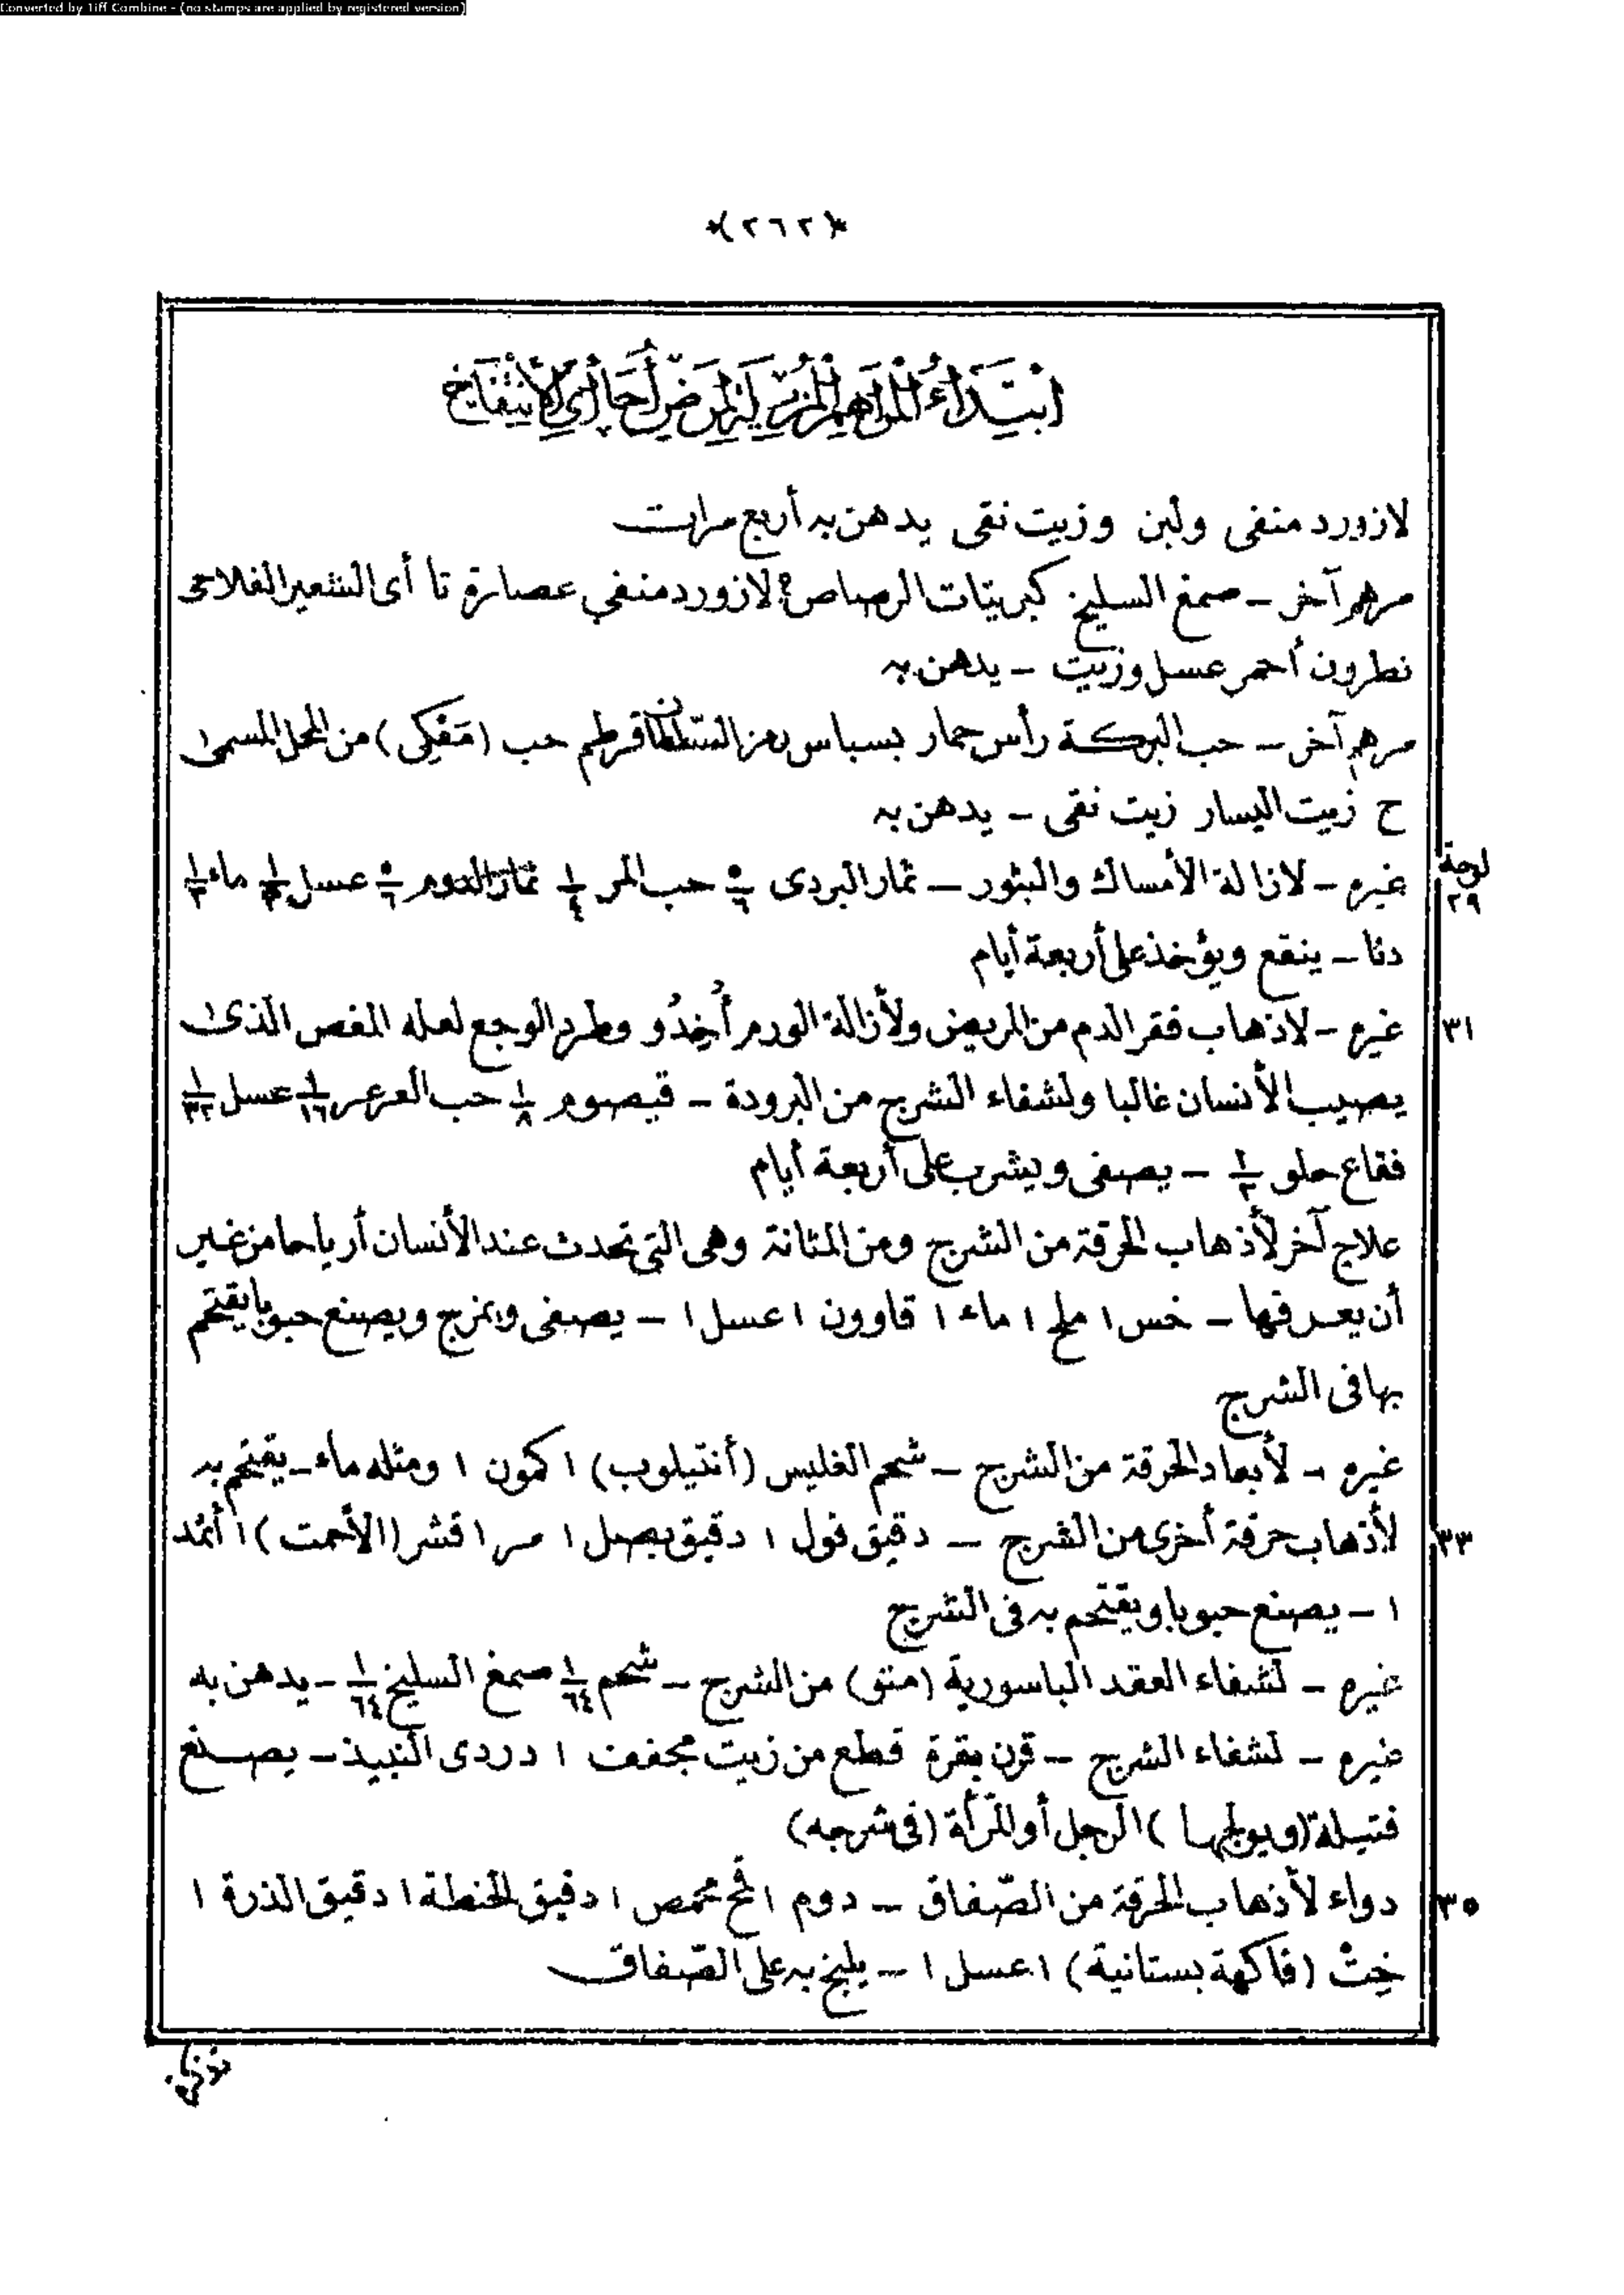 Converted by Tiff Combine - (no stamps are applied by registered version)
*(٢٦٢)*
ابتداء المراهم المزيلة لمرض أحا أى الأنتفاخ
لازورد منفى ولبن وزيت نقى يدهن به أربع مرات
مرهم آخر – صمغ السليخ كبريتات الرصاص؟ لازورد منفي عصارة تا أى الشعير الفلاحى
نطرون أحمر عسل وزيت – يدهن به
مرهم آخر – حب البركة رأس حمار بسباس قرطم حب (مَفْكِى) من المحل المسمى
ح زيت اليسار زيت نقى – يدهن به
لوحة ٢٩
غيره – لازالة الأمساك والبثور – ثمار البردى حب المر ١/٤ ثمار الدوم عسل ماء
دنا – ينقع ويؤخذ على أربعة أيام
٣١
غيره – لاذهاب فقر الدم من المريض ولأزالة الورم أُخِدُو وطرد الوجع لعله المغص الذى
يصيب الأنسان غالبا ولشفاء الشرج من البرودة – قيصوم ١/٨ حب العرعر ١/١٦ عسل ١/٣٢
فقاع حلو ١/٢ – يصفى ويشرب على أربعة أيام
علاج آخر لأذهاب الحرقة من الشرج ومن المثانة وهى التى تحدث عند الأنسان أرياحا من غير
أن يعرفها – خس ١ ملح ١ ماء ١ قاوون ١ عسل ١ – يصفى ويمزج ويصنع حبوبا يقتحم
بها فى الشرج
غيره – لأبعاد الحرقة من الشرج – شحم الغليس (أنتيلوب) ١ كمون ١ ومثله ماء – يقتحم به
٣٣
لأذهاب حرقة أخرى من الشرج – دقيق فول ١ دقيق بصل ١ مر ١ قشر (الأحمت) ١ أثمد
١ – يصنع حبوبا ويقتحم به فى الشرج
غيره – لشفاء العقد الباسورية (متو) من الشرج – شحم ١/٦٤ صمغ السليخ ١/٦٤ – يدهن به
غيره – لشفاء الشرج – قرن بقرة قطع من زيت مجففت ١ دردى النبيذ – يصنع
فتيلة (ويولجها) الرجل أو المرأة (فى شرجه)
٣٥
دواء لأذهاب الحرقة من الصّفاق – دوم ١ قمح محمص ١ دقيق الحنطة ١ دقيق الذرة ١
خِتْ (فاكهة بستانية) ١ عسل ١ – يلبخ به على الصّفاق